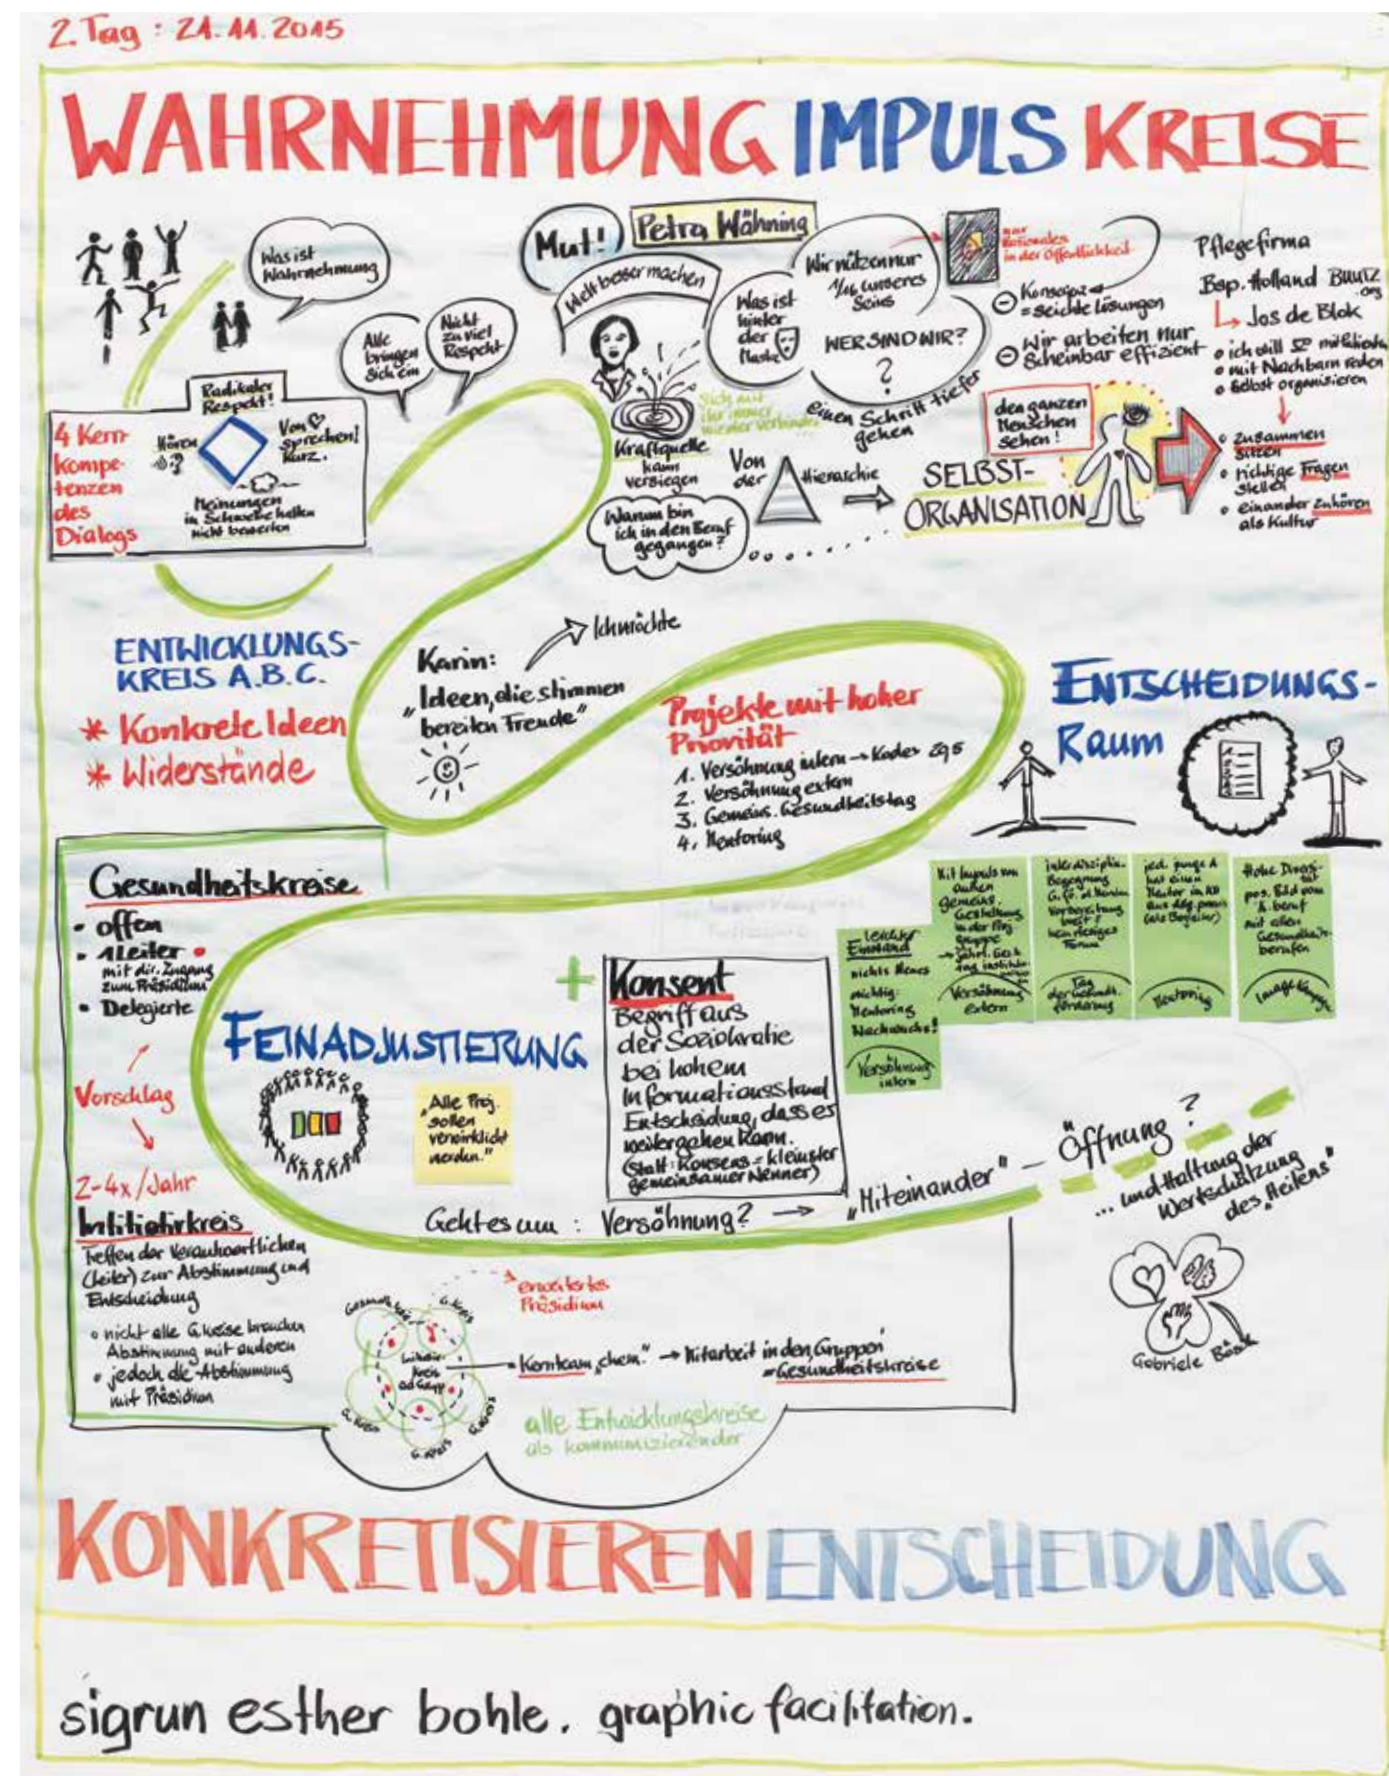 2. Tag : 21.11.2015
WAHRNEHMUNG IMPULS KREISE
Was ist
Wahrnehmung
Alle
bringen
sich ein
Nicht
zu viel
Respekt
Radikaler
Respekt!
4 Kern-
kompe-
tenzen
des
Dialogs
Hören
Von ♡
sprechen!
Kurz.
Meinungen
in Schwebe halten
nicht bewerten
Mut!
Petra Wähning
Welt besser machen
Kraftquelle
kann
versiegen
Sich mit
ihr immer
wieder verbinden
Warum bin
ich in den Beruf
gegangen?
Was ist
hinter
der
Maske
Wir nützen nur
unseres
Seins
WER SIND WIR?
?
einen Schritt tiefer
gehen
Von
der
Hierarchie
SELBST-
ORGANISATION
nur
Rationales
in der Öffentlichkeit
Konsens
= seichte Lösungen
Wir arbeiten nur
scheinbar effizient
den ganzen
Menschen
sehen!
Pflegefirma
Bsp. Holland Buurtz
.org
Jos de Blok
ich will
mit Nachbarn reden
selbst organisieren
zusammen
sitzen
richtige Fragen
stellen
einander zuhören
als Kultur
ENTWICKLUNGS-
KREIS A.B.C.
* Konkrete Ideen
* Widerstände
Karin:
Ich möchte
„Ideen, die stimmen
bereiten Freude"
Projekte mit hoher
Priorität
1. Versöhnung intern → Kodex
2. Versöhnung extern
3. Gemeins. Gesundheitstag
4. Mentoring
ENTSCHEIDUNGS-
RAUM
Gesundheitskreise
• offen
• 1 Leiter
mit dir. Zugang
zum Präsidium
• Delegierte
Vorschlag
2-4x/Jahr
Inititiirkreis
Treffen der Verantwortlichen
(Leiter) zur Abstimmung und
Entscheidung
nicht alle G.kreise brauchen
Abstimmung mit anderen
jedoch die Abstimmung
mit Präsidium
FEINADJUSTIERUNG
„Alle Proj.
sollen
verwirklicht
werden."
+
Konsent
Begriff aus
der Soziokratie
bei hohem
Informationsstand
Entscheidung, dass es
weitergehen kann.
(Statt: Konsens = kleinster
gemeinsamer Nenner)
leichter
Einwand
nichts Neues
wichtig:
Mentoring
Nachwuchs!
Versöhnung
intern
Mit Impuls von
außen
gemeins.
Gestaltung
in der
gruppe
Versöhnung
extern
interdisziplin.
Begegnung
Vorbereitung
Forum
Tag
der Gesundh.
förderung
jed. junge A
hat einen
Mentor in
(als Begleiter)
Mentoring
Hohe Diversi-
tät
pos. Bild vom
beruf
mit allen
Gesundheits-
berufen
Geht es um : Versöhnung? → „Miteinander" – Öffnung?
... und Haltung der
Wertschätzung
des „Heilens"
Gabriele
erweitertes
Präsidium
G.Kreis
Kreis
G.Kreis
G.Kreis
G.Kreis
Kernteam „chem." → Mitarbeit in den Gruppen
= Gesundheitskreise
alle Entwicklungskreise
als kommunizierender
KONKRETISIEREN ENTSCHEIDUNG
sigrun esther bohle. graphic facilitation.